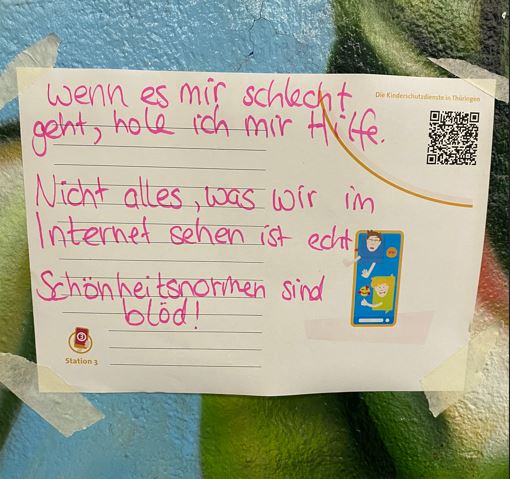 wenn es mir schlecht
geht, hole ich mir Hilfe.
Die Kinderschutzdienste in Thüringen
Nicht alles, was wir im
Internet sehen ist echt
Schönheitsnormen sind
blöd!
3
Station 3